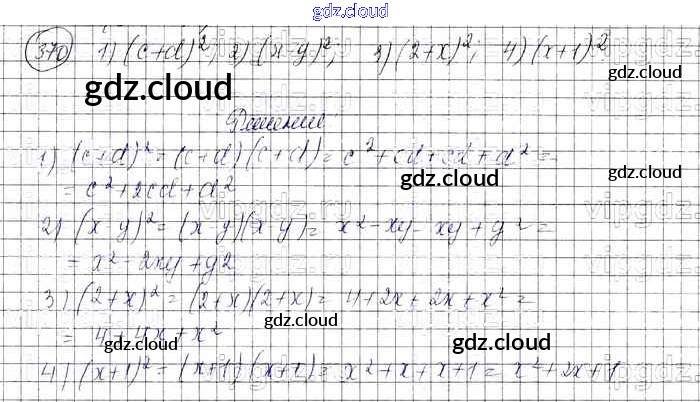 gdz.cloud
370 1) (c+d)²; 2) (x-y)²; 3) (2+x)²; 4) (x+1)²
gdz.cloud
gdz.cloud
Решение
1) (c+d)² = (c+d)(c+d) = c²+cd+cd+d² =
gdz.cloud
gdz.cloud
= c²+2cd+d²
2) (x-y)² = (x-y)(x-y) = x²-xy-xy+y² =
= x²-2xy+y²
gdz.cloud
3) (2+x)² = (2+x)(2+x) = 4+2x+2x+x² =
gdz.cloud
= 4+4x+x²
gdz.cloud
4) (x+1)² = (x+1)(x+1) = x²+x+x+1 = x²+2x+1